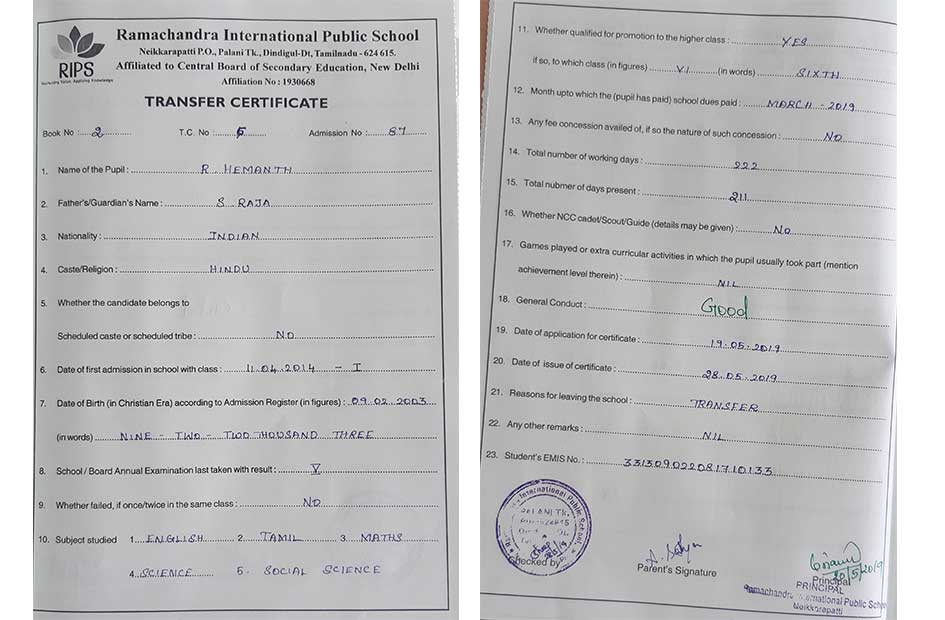 RIPS
Nurturing Minds, Applying Knowledge
Ramachandra International Public School
Neikkarapatti P.O., Palani Tk., Dindigul-Dt, Tamilnadu - 624 615.
Affiliated to Central Board of Secondary Education, New Delhi
Affiliation No : 1930668
TRANSFER CERTIFICATE
Book No : 2 T.C. No : 5 Admission No : 87
1. Name of the Pupil : R. HEMANTH
2. Father's/Guardian's Name : S RAJA
3. Nationality : INDIAN
4. Caste/Religion : HINDU
5. Whether the candidate belongs to
Scheduled caste or scheduled tribe : NO
6. Date of first admission in school with class : 11.04.2014 - I
7. Date of Birth (in Christian Era) according to Admission Register (in figures) : 09.02.2003
(in words) NINE - TWO - TWO THOUSAND THREE
8. School / Board Annual Examination last taken with result : V
9. Whether failed, if once/twice in the same class : NO
10. Subject studied 1. ENGLISH 2. TAMIL 3. MATHS
4. SCIENCE 5. SOCIAL SCIENCE
11. Whether qualified for promotion to the higher class : YES
if so, to which class (in figures) VI (in words) SIXTH
12. Month upto which the (pupil has paid) school dues paid : MARCH - 2019
13. Any fee concession availed of, if so the nature of such concession : NO
14. Total number of working days : 222
15. Total nubmer of days present : 211
16. Whether NCC cadet/Scout/Guide (details may be given) : NO
17. Games played or extra curricular activities in which the pupil usually took part (mention
achievement level therein) : NIL
18. General Conduct : Good
19. Date of application for certificate : 19.05.2019
20. Date of issue of certificate : 28.05.2019
21. Reasons for leaving the school : TRANSFER
22. Any other remarks : NIL
23. Student's EMIS No. : 331309022081710133
International Public School
PALANI TK.
Checked by
Parent's Signature
Principal
PRINCIPAL
Ramachandra International Public School
Neikkarapatti